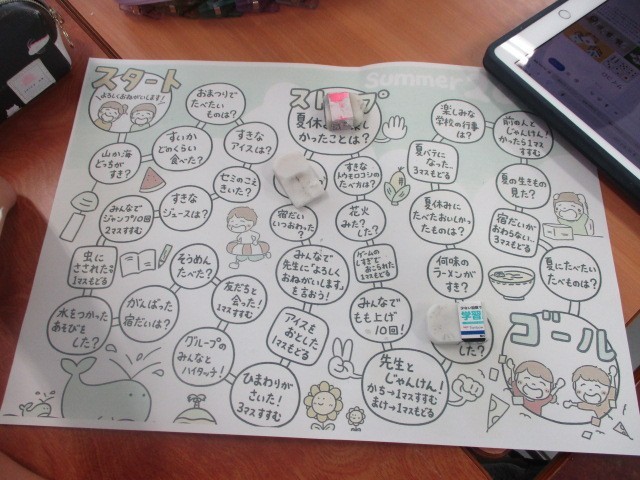 スタート
よろしくおねがいします!
山か海
どっちが
すき?
みんなで
ジャンプ10回
2マスすすむ
虫に
さされた。
1マスもどる
水をつかった
あそびを
した?
がんばった
宿だいは?
そうめん
たべた?
すきな
ジュースは?
すいか
どのくらい
食べた?
おまつりで
たべたい
ものは?
すきな
アイスは?
セミのこえ
きいた?
友だちと
会った!
1マスすすむ
グループの
みんなと
ハイタッチ!
ひまわりが
さいた!
3マスすすむ
アイスを
おとした
1マスもどる
みんなで
先生に「よろしく
おねがいします。」
を言おう!
宿だい
いつおわった
?
夏休み
かったことは?
すきな
トウモロコシの
たべ方は?
花火
みた?
した?
ゲームの
しすぎで
おこられた
1マスもどる
みんなで
もも上げ
10回!
先生と
じゃんけん!
かち→1マスすすむ
まけ→1マスもどる
した?
学習
何味の
ラーメンが
すき?
夏休みに
たべたおいしかっ
たものは?
夏バテに
なった…
3マスもどる
楽しみな
学校の行事
は?
前の人と
じゃんけん!
かったら1マス
すすむ
夏の生きもの
見た?
宿だいが
おわらない…
3マスもどる
夏にたべたい
たべものは?
ゴール
Summer